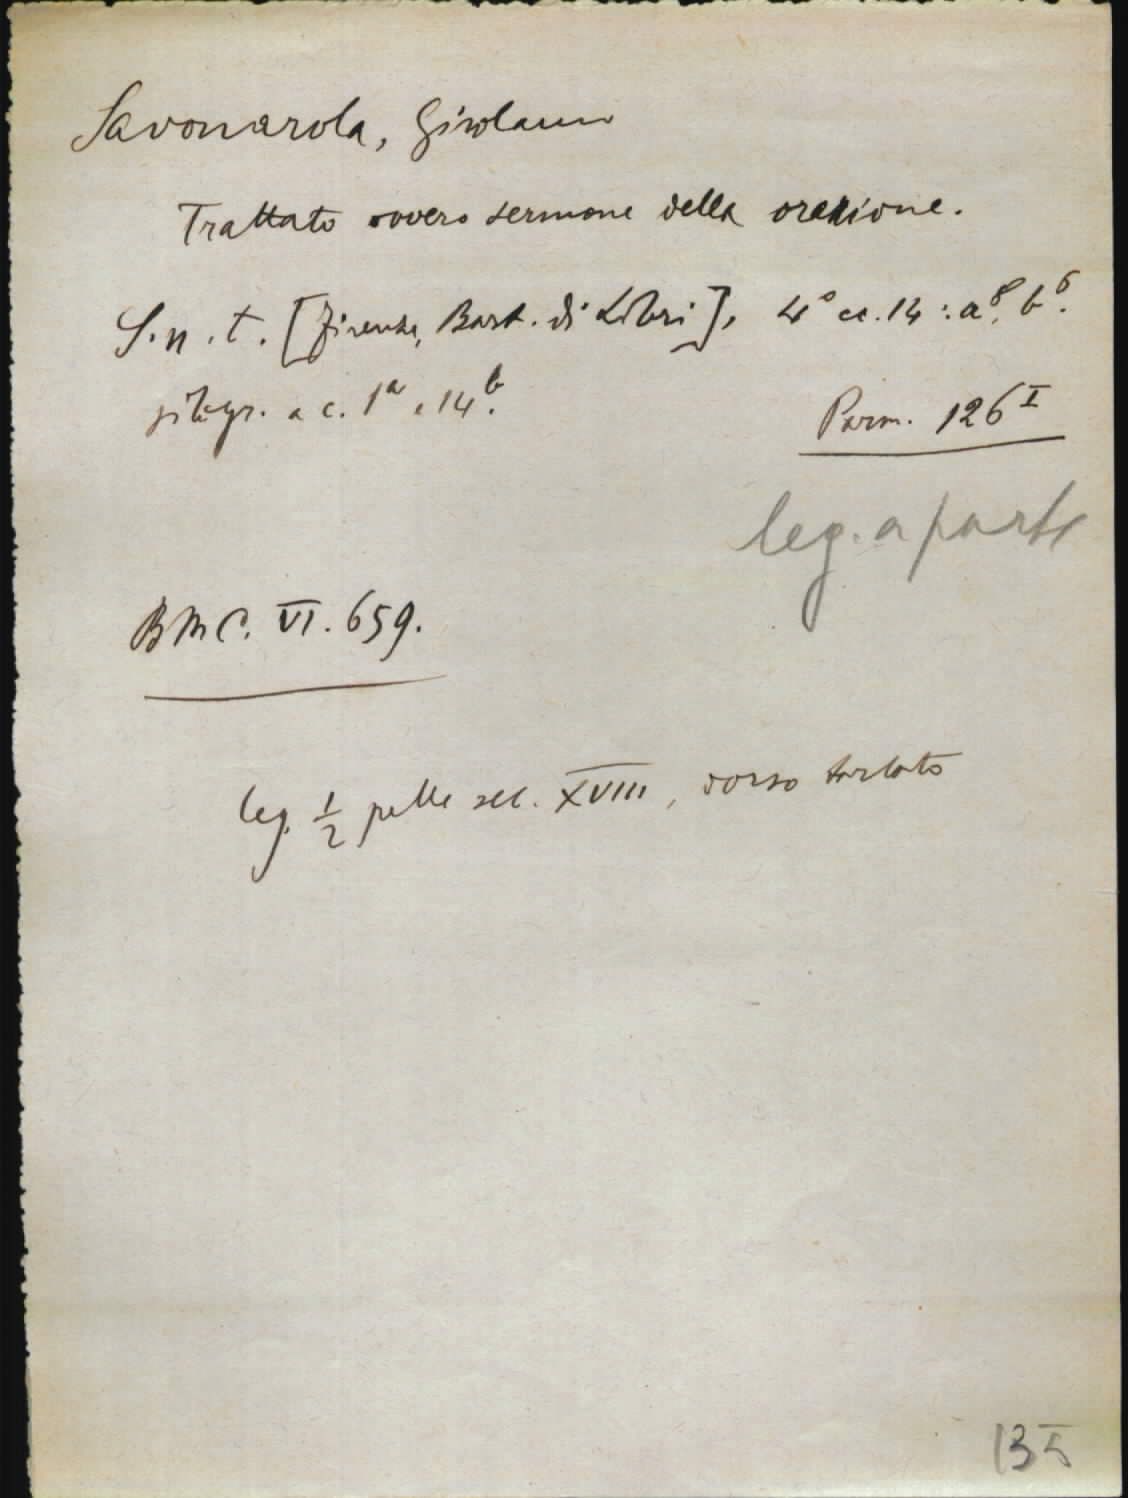 Savonarola, Girolamo
Trattato ovvero sermone della orazione.
S. n. t. [Firenze, Bart. di Libri], 4° cc. 14 : a⁸, b⁶.
silogr. a c. 1ᵃ e 14ᵇ.
Parm. 126ᴵ
leg. a parte
BMC. VI. 659.
leg. ½ pelle sec. XVIII, dorso tarlato
135